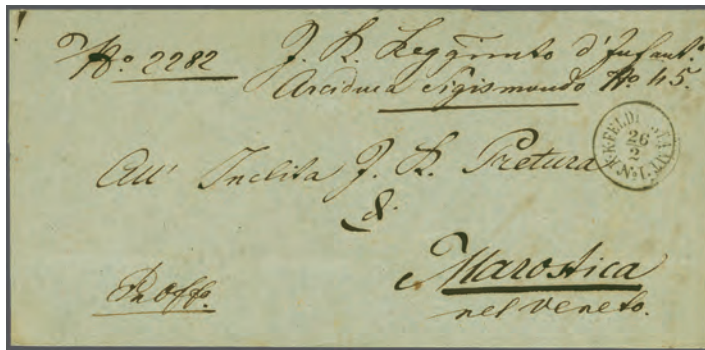 No. 2282
I. R. Reggimto d'Infant.a
Arciduca Sigismondo No 45.
K.K.FELDPOSTAMT No I.
26
2
All' Inclita I. R. Pretura
di
Marostica
nel Veneto.
Ex offo.